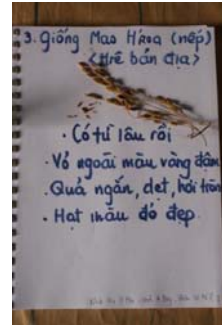 3. Giống Mao Hroa (nếp)
<Hrê bản địa>
• Có từ lâu rồi
• Vỏ ngoài màu vàng đậm
• Quả ngắn, dẹt, hơi tròn
• Hạt màu đỏ đẹp.